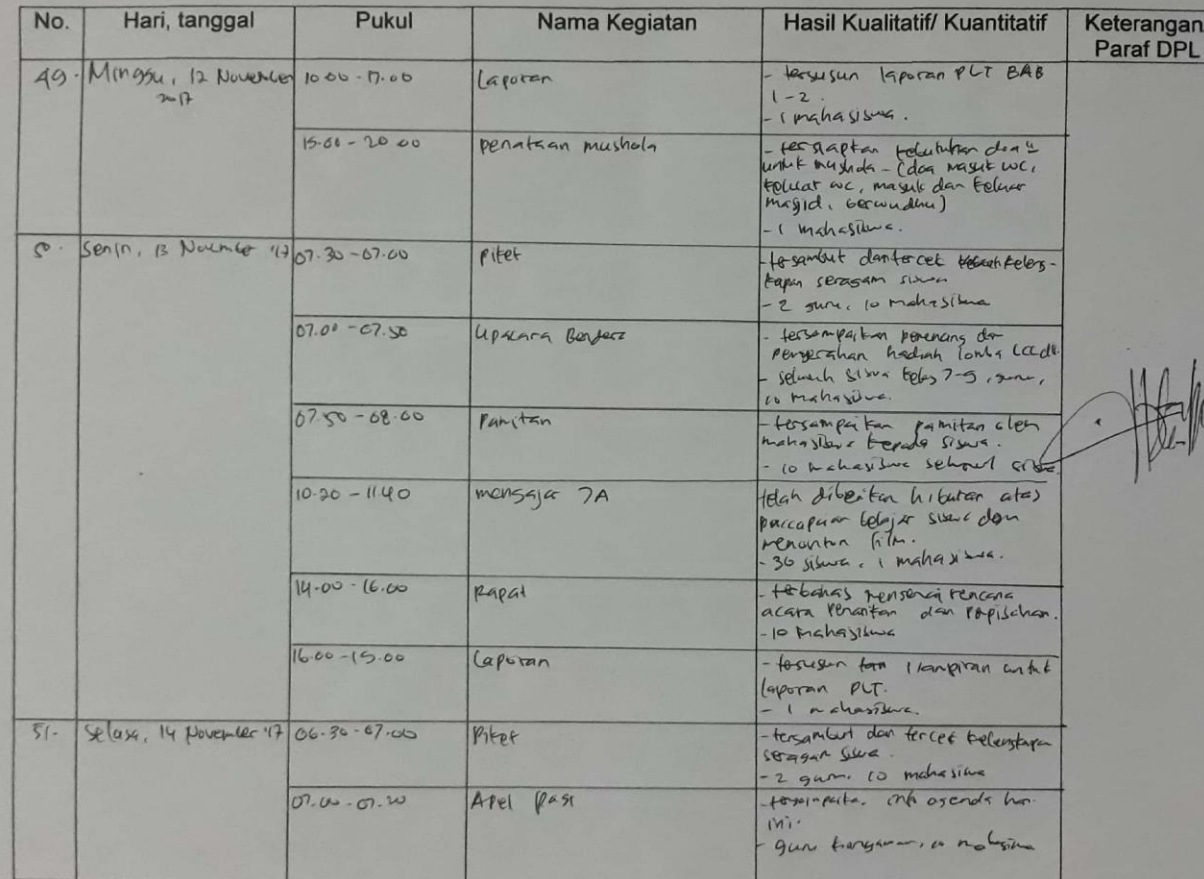 No. Hari, tanggal Pukul Nama Kegiatan Hasil Kualitatif/ Kuantitatif Keterangan/
Paraf DPL
49. Minggu, 12 November 10.00 - 17.00 Laporan - tersusun laporan PLT BAB
2017 1 - 2.
- 1 mahasiswa.
15.00 - 20.00 penataan mushola - tersiapkan kebutuhan doa"
untuk mushola - (doa masuk wc,
keluar wc, masuk dan keluar
masjid, berwudhu)
- 1 mahasiswa.
50. Senin, 13 November '17 07.30 - 07.00 Piket - tersambut dan tercek keleng-
kapan seragam siswa
- 2 guru, 10 mahasiswa
07.00 - 07.50 Upacara Bendera - tersampaikan pemenang dan
penyerahan hadiah lomba LCC dll.
- seluruh siswa kelas 7-9, guru,
10 mahasiswa.
07.50 - 08.00 Pamitan - tersampaikan pamitan oleh
mahasiswa kepada siswa.
- 10 mahasiswa
10.20 - 11.40 mengajar 7A telah diberikan hiburan atas
belajar siswa dan
menonton film.
- 30 siswa, 1 mahasiswa.
14.00 - 16.00 Rapat - terbahas mengenai rencana
acara Penarikan dan Perpisahan.
- 10 mahasiswa
16.00 - 19.00 Laporan - tersusun lampiran untuk
laporan PLT.
- 1 mahasiswa.
51. Selasa, 14 November '17 06.30 - 07.00 Piket - tersambut dan tercek kelengkapan
seragam siswa.
- 2 guru, 10 mahasiswa
07.00 - 07.20 Apel Pagi - info agenda hari
ini.
- guru 10 mahasiswa